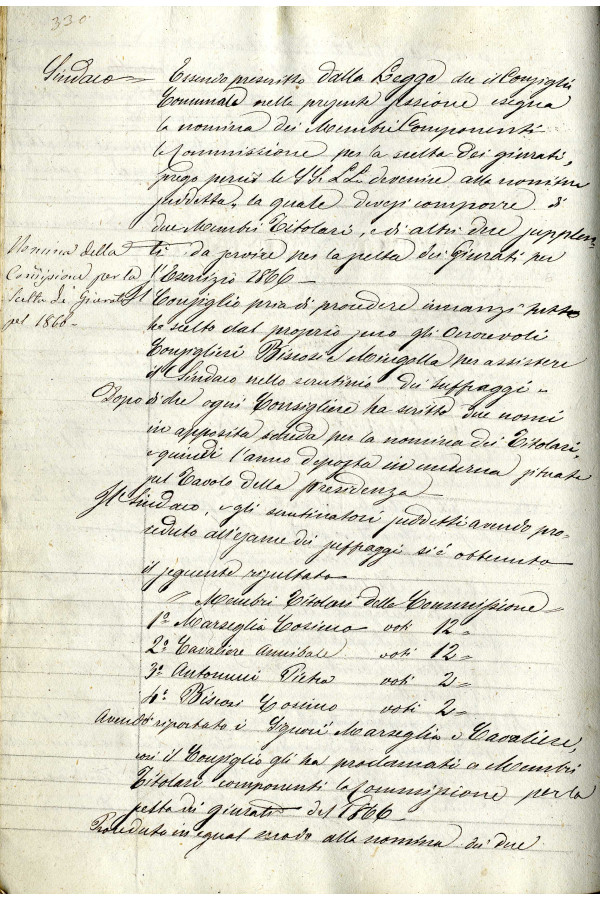 330
Sindaco = Essendo prescritto dalla Legge che il Consiglio
Comunale nella presente sessione esegua
la nomina dei Membri Componenti
la Commissione per la scelta dei giurati,
prego perciò le SS. LL. devenire alla nomina
suddetta, la quale devesi comporre di
due Membri Titolari, e di altri due supplen=
ti da servire per la scelta dei Giurati per
l'Esercizio 1866 —
Nomina della
Comissione per la
scelta dè Giurati
pel 1866 -
Il Consiglio pria di procedere innanzi tutto
ha scelto dal proprio seno gli Onorevoli
Consiglieri Biscosi e Mingolla per assistere
il Sindaco nello scrutinio dei suffraggi =
Dopo di che ogni Consigliere ha scritto due nomi
in apposita scheda per la nomina dei Titolari,
e quindi l'anno deposta in un'urna situata
sul Tavolo della Presidenza —
Il Sindaco, e gli scrutinatori suddetti avendo pro=
ceduto all'esame dei suffraggi si è ottenuto
il seguente risultato
" Membri Titolari della Commissione =
1.º Marseglia Cosimo voti 12 =
2.º Cavaliere Annibale voti 12 =
3.º Antonucci Pietro voti 2 =
4.º Biscosi Cosimo voti 2 =
Avendo riportato i Signori Marseglia e Cavaliere,
così il Consiglio gli ha proclamati a Membri
Titolari componenti la Commissione per la
scelta dei giurati del 1866 —
Proceduto in egual modo alla nomina dei due